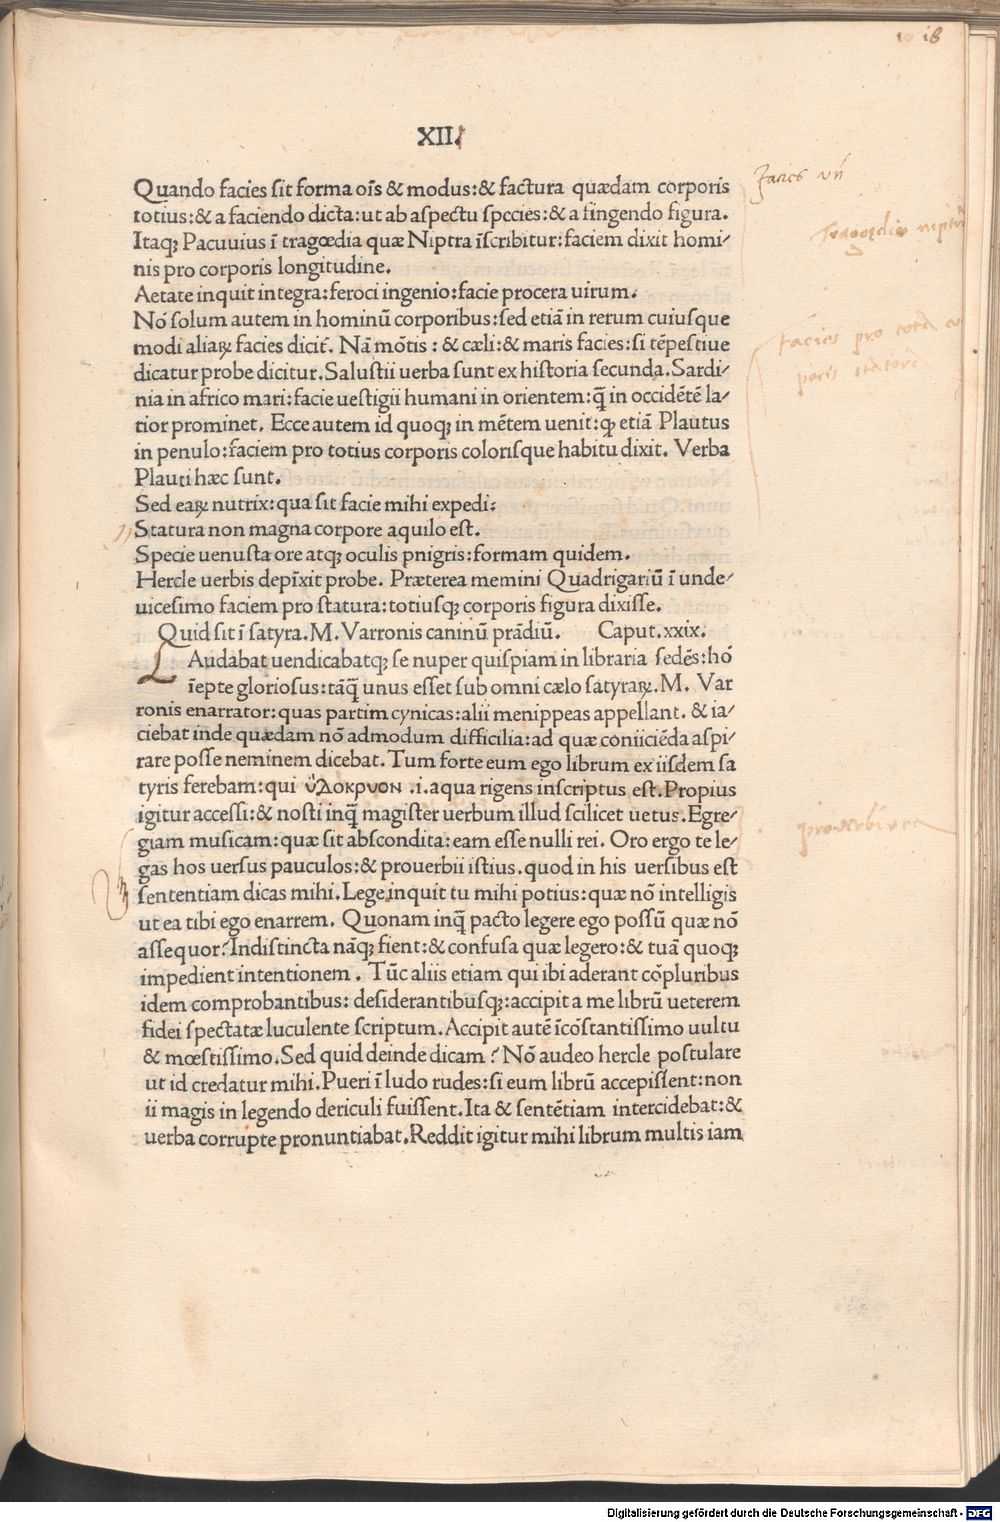 18
XII.
Quando facies sit forma oīs & modus:& factura quædam corporis
totius:& a faciendo dicta:ut ab aspectu species:& a fingendo figura.
Itaqꝫ Pacuuius ī tragœdia quæ Niptra īscribitur:faciem dixit homi/
nis pro corporis longitudine.
Aetate inquit integra:feroci ingenio:facie procera uirum.
Nō solum autem in hominū corporibus:sed etiā in rerum cuiusque
modi aliaꝝ facies dicit̄. Nā mōtis : & cæli:& maris facies:si tēpestiue
dicatur probe dicitur.Salustii uerba sunt ex historia secunda.Sardi/
nia in africo mari:facie uestigii humani in orientem:q̄ in occidētē la/
tior prominet. Ecce autem id quoqꝫ in mētem uenit:qꝫ etiā Plautus
in penulo:faciem pro totius corporis colorisque habitu dixit. Verba
Plauti hæc sunt.
Sed eaꝝ nutrix:qua sit facie mihi expedi:
Statura non magna corpore aquilo est.
Specie uenusta ore atqꝫ oculis pnigris:formam quidem.
Hercle uerbis depīxit probe. Præterea memini Quadrigariū ī unde/
uicesimo faciem pro statura:totiusqꝫ corporis figura dixisse.
Quid sit ī satyra.M. Varronis caninū prādiū. Caput.xxix.
L Audabat uendicabatqꝫ se nuper quispiam in libraria sedēs:hō
īepte gloriosus:tāq̄ unus esset sub omni cælo satyraꝝ.M. Var
ronis enarrator:quas partim cynicas:alii menippeas appellant. & ia/
ciebat inde quædam nō admodum difficilia:ad quæ coniiciēda aspi/
rare posse neminem dicebat. Tum forte eum ego librum ex iisdem sa
tyris ferebam:qui ὑδοκρυον .i.aqua rigens inscriptus est.Propius
igitur accessi:& nosti inq̄ magister uerbum illud scilicet uetus.Egre/
giam musicam:quæ sit abscondita:eam esse nulli rei. Oro ergo te le/
gas hos uersus pauculos:& prouerbii istius.quod in his uersibus est
sententiam dicas mihi.Lege inquit tu mihi potius:quæ nō intelligis
ut ea tibi ego enarrem. Quonam inq̄ pacto legere ego possū quæ nō
assequor?Indistincta nāqꝫ fient:& confusa quæ legero:& tuā quoqꝫ
impedient intentionem . Tūc aliis etiam qui ibi aderant cōpluribus
idem comprobantibus: desiderantibusqꝫ:accipit a me librū ueterem
fidei spectatæ luculente scriptum.Accipit autē īcōstantissimo uultu
& mœstissimo.Sed quid deinde dicam ? Nō audeo hercle postulare
ut id credatur mihi.Pueri ī ludo rudes:si eum librū accepissent:non
ii magis in legendo dericuli fuissent.Ita & sentētiam intercidebat:&
uerba corrupte pronuntiabat.Reddit igitur mihi librum multis iam
Facies
Tragoedia
Facies pro
Digitalisierung gefördert durch die Deutsche Forschungsgemeinschaft - DFG